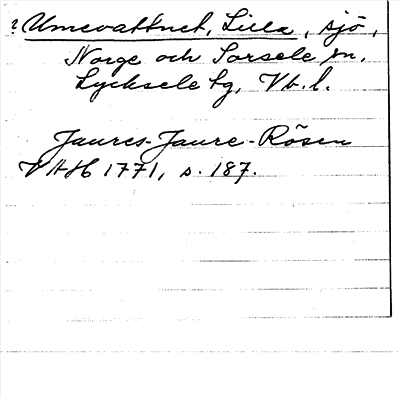 ? Umevattnet, Lilla, sjö,
Norge och Sorsele sn,
Lycksele tg, Vb. l.
Jaures-Jaure - Rösen
VAH 1771, s. 187.